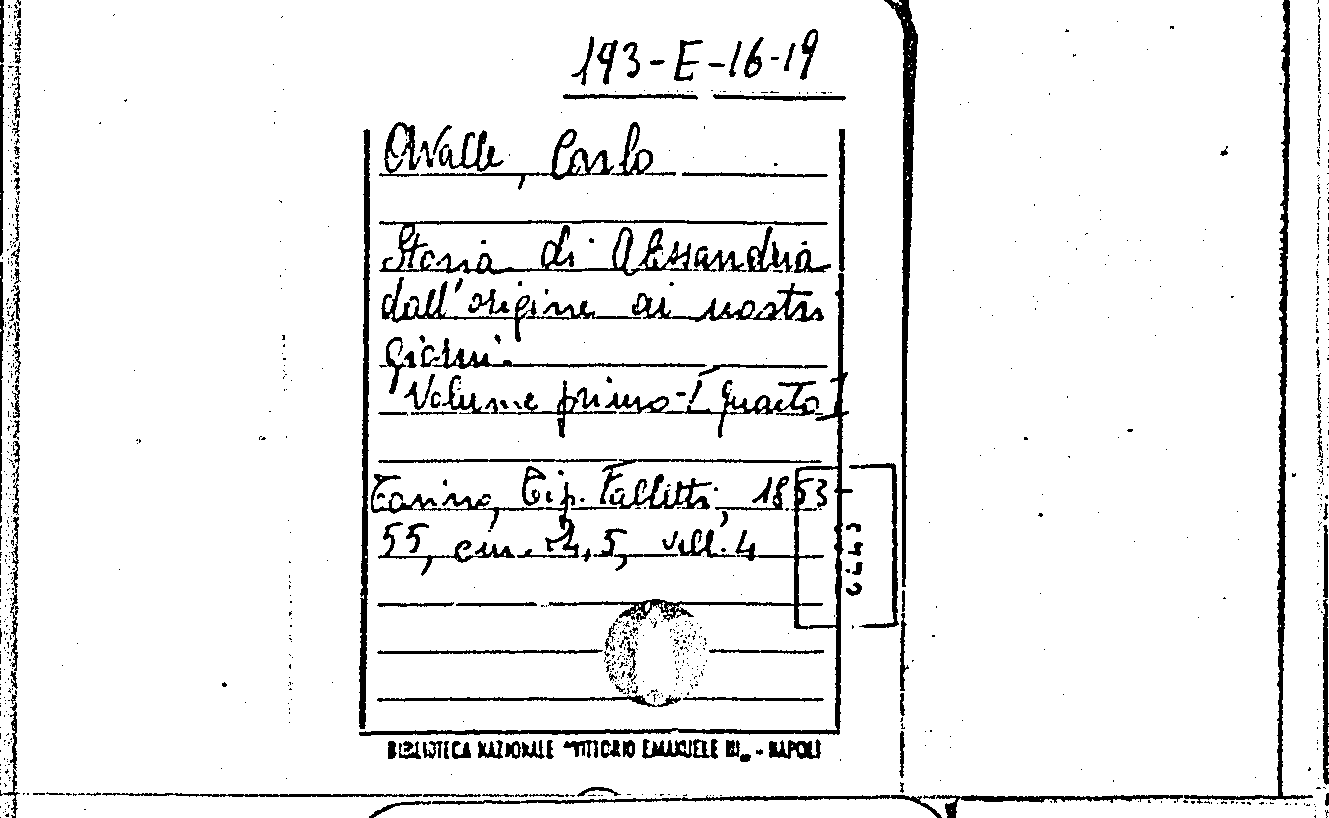 193-E-16-19
Avalle, Carlo
Storia di Alessandria
dall'origine ai nostri
giorni.
Volume primo-[quarto]
Torino, Tip. Falletti, 1853
55, cm. 21,5, voll. 4
BIBLIOTECA NAZIONALE "VITTORIO EMANUELE III„ - NAPOLI